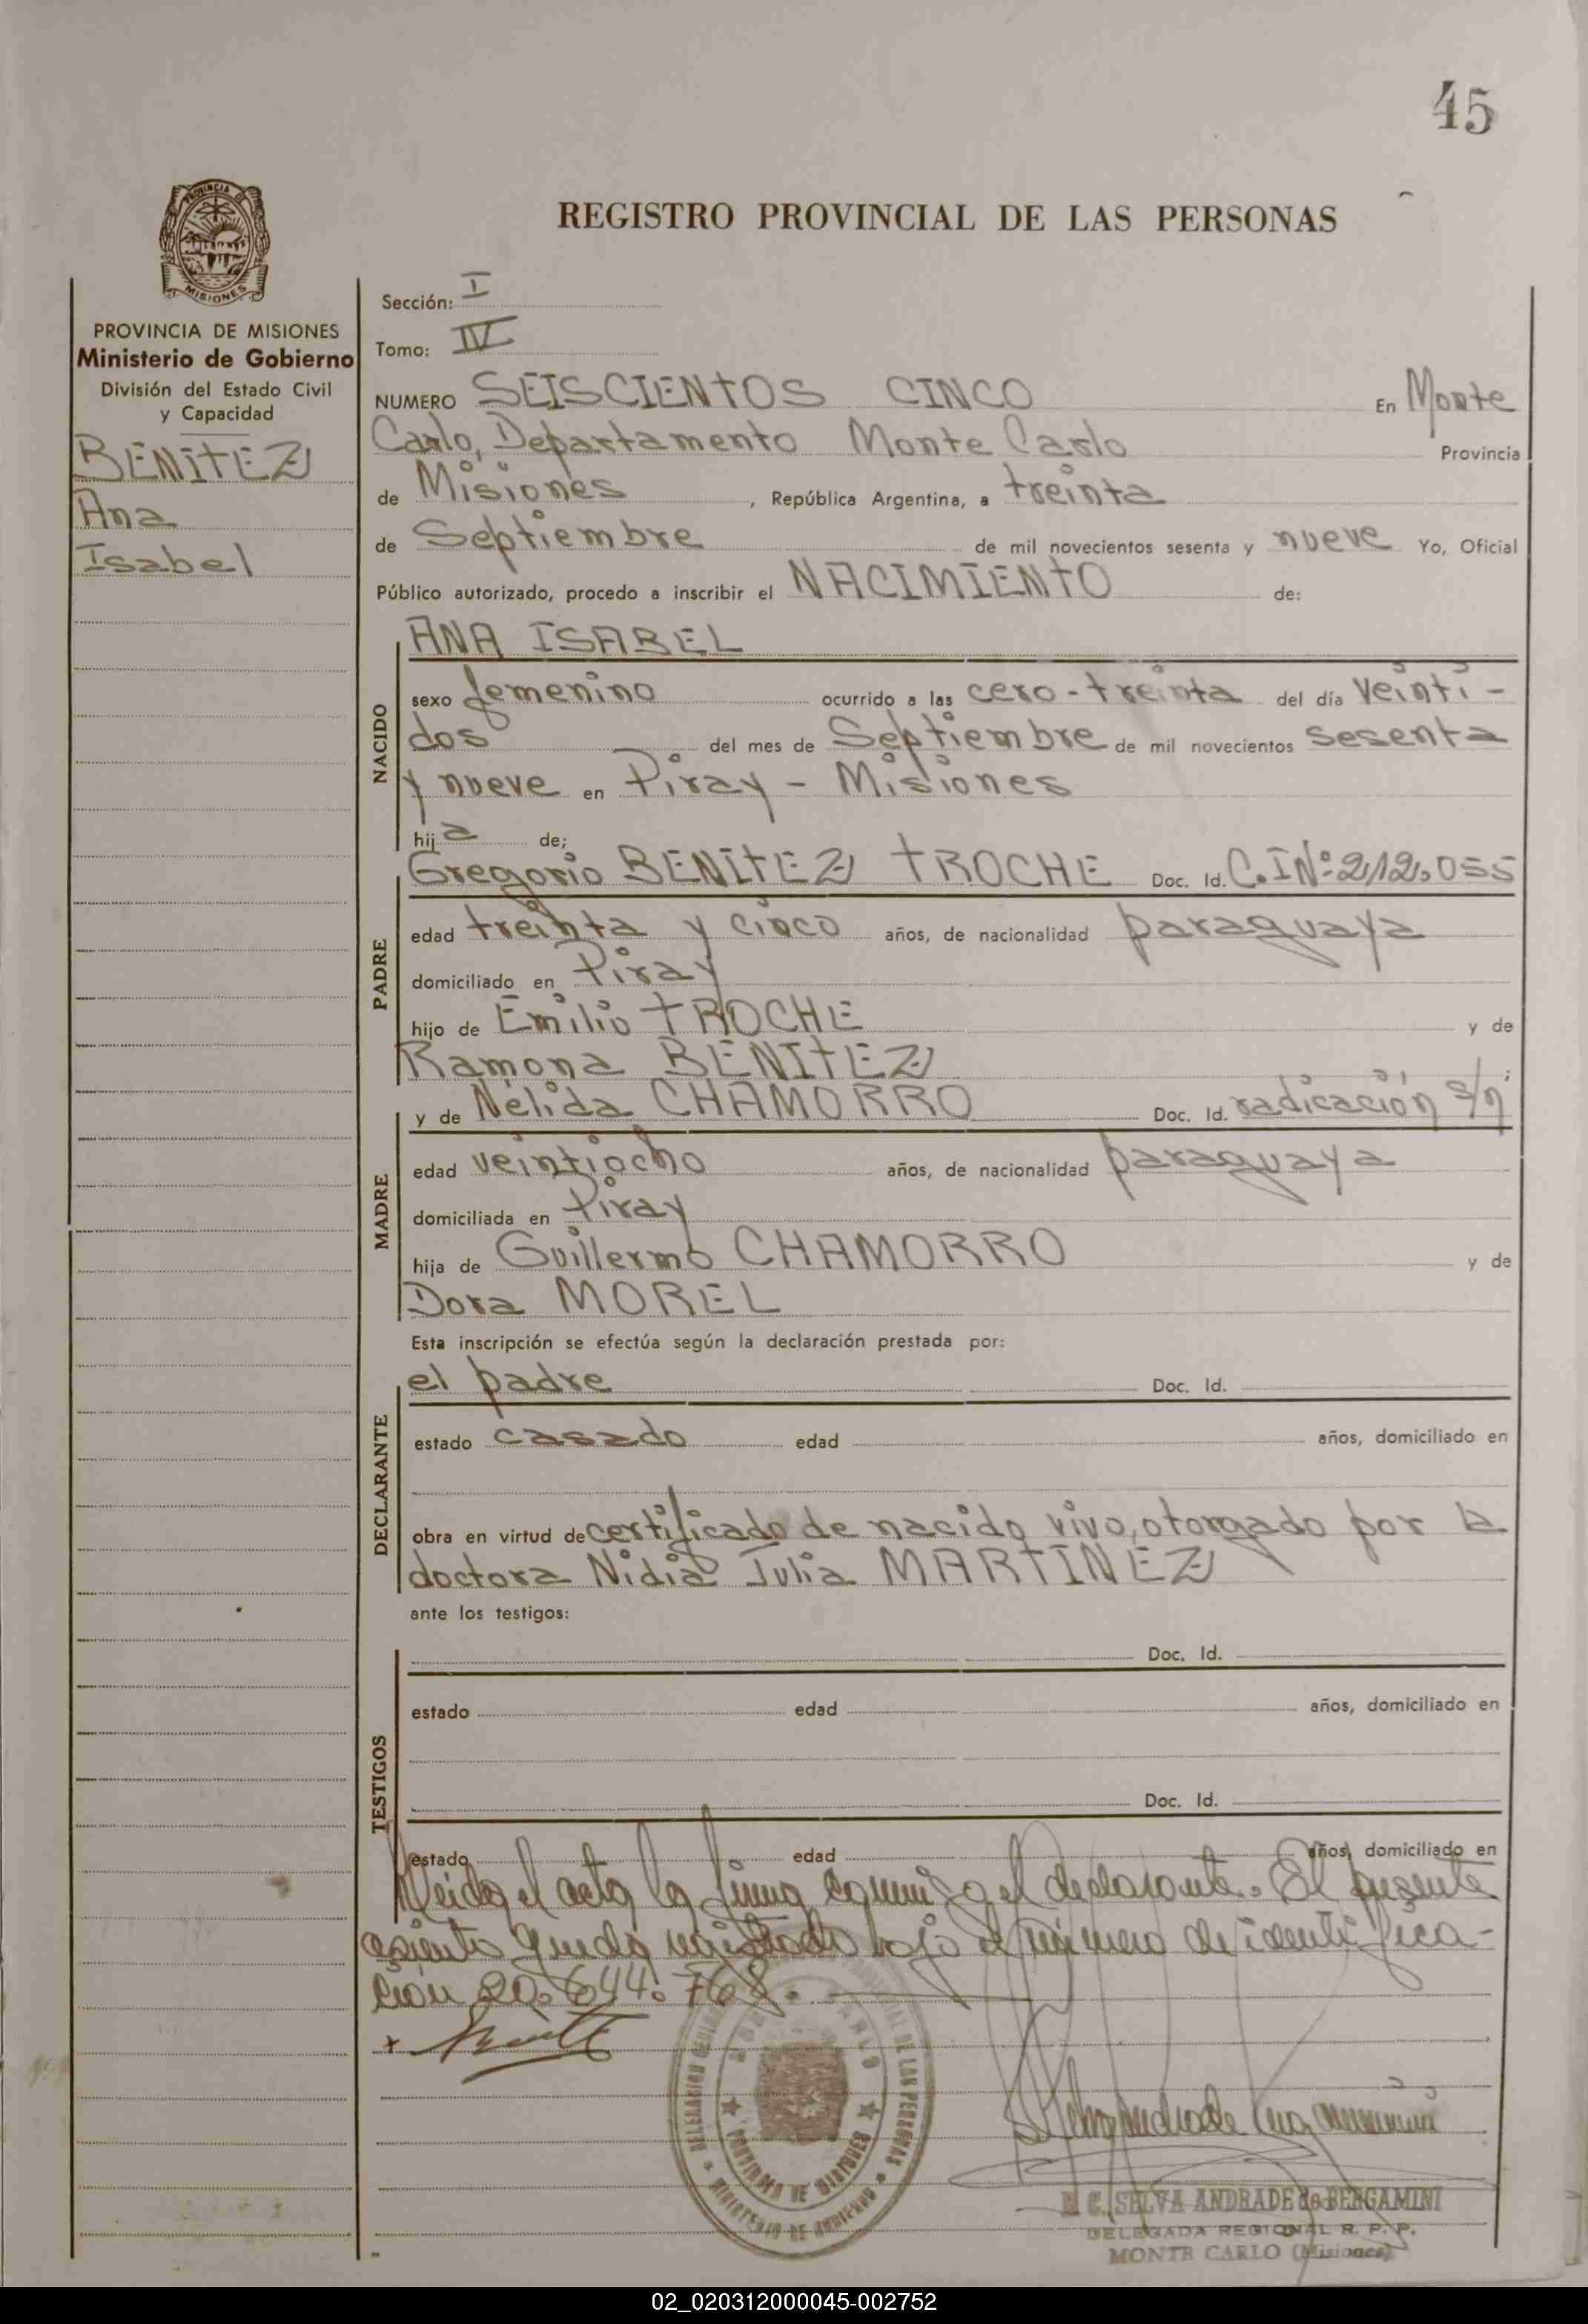 45
PROVINCIA
MISIONES
REGISTRO PROVINCIAL DE LAS PERSONAS
PROVINCIA DE MISIONES
Ministerio de Gobierno
División del Estado Civil
y Capacidad
BENITEZ
Ana
Isabel
Sección: I
Tomo: IV
NUMERO SEISCIENTOS CINCO En Monte
Carlo, Departamento Monte Carlo Provincia
de Misiones, República Argentina, a treinta
de Septiembre de mil novecientos sesenta y nueve Yo, Oficial
Público autorizado, procedo a inscribir el NACIMIENTO de:
NACIDO
ANA ISABEL
sexo femenino ocurrido a las cero-treinta del día veinti-
dos del mes de Septiembre de mil novecientos sesenta
y nueve en Piray - Misiones
hija de;
PADRE
Gregorio BENITEZ TROCHE Doc. Id. C.I Nº 212.055
edad treinta y cinco años, de nacionalidad paraguaya
domiciliado en Piray
hijo de Emilio TROCHE y de
Ramona BENITEZ
MADRE
y de Nélida CHAMORRO Doc. Id. radicación s/n
edad veintiocho años, de nacionalidad paraguaya
domiciliada en Piray
hija de Guillermo CHAMORRO y de
Dora MOREL
Esta inscripción se efectúa según la declaración prestada por:
DECLARANTE
el padre Doc. Id.
estado casado edad años, domiciliado en
obra en virtud de certificado de nacido vivo, otorgado por la
doctora Nidia Julia MARTINEZ
ante los testigos:
TESTIGOS
Doc. Id.
estado edad años, domiciliado en
Doc. Id.
estado edad años, domiciliado en
Leida el acta la firma conmigo el declarante. El presente
asiento queda registrado bajo el número de identifica-
ción 20.644.768.
PROVINCIA DE MISIONES
MINISTERIO DE GOBIERNO
DE LAS PERSONAS
SELVA ANDRADE de BERGAMINI
DELEGADA REGIONAL R. P. P.
MONTE CARLO (Misiones)
02_020312000045-002752